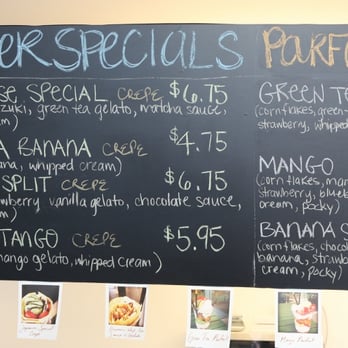 ER SPECIALS
SE SPECIAL CREPE $6.75
zuki, green tea gelato, matcha sauce,
m)
A BANANA CREPE $4.75
ana, whipped cream)
SPLIT CREPE $6.75
wberry vanilla gelato, chocolate sauce,
m)
TANGO CREPE $5.95
mango gelato, whipped cream)
PARF
GREEN TE
(corn flakes, green
strawberry, whipped
MANGO
(corn flakes, man
strawberry, blueb
cream, pocky)
BANANA S
(corn flakes, choc
banana, strawb
cream, pocky)